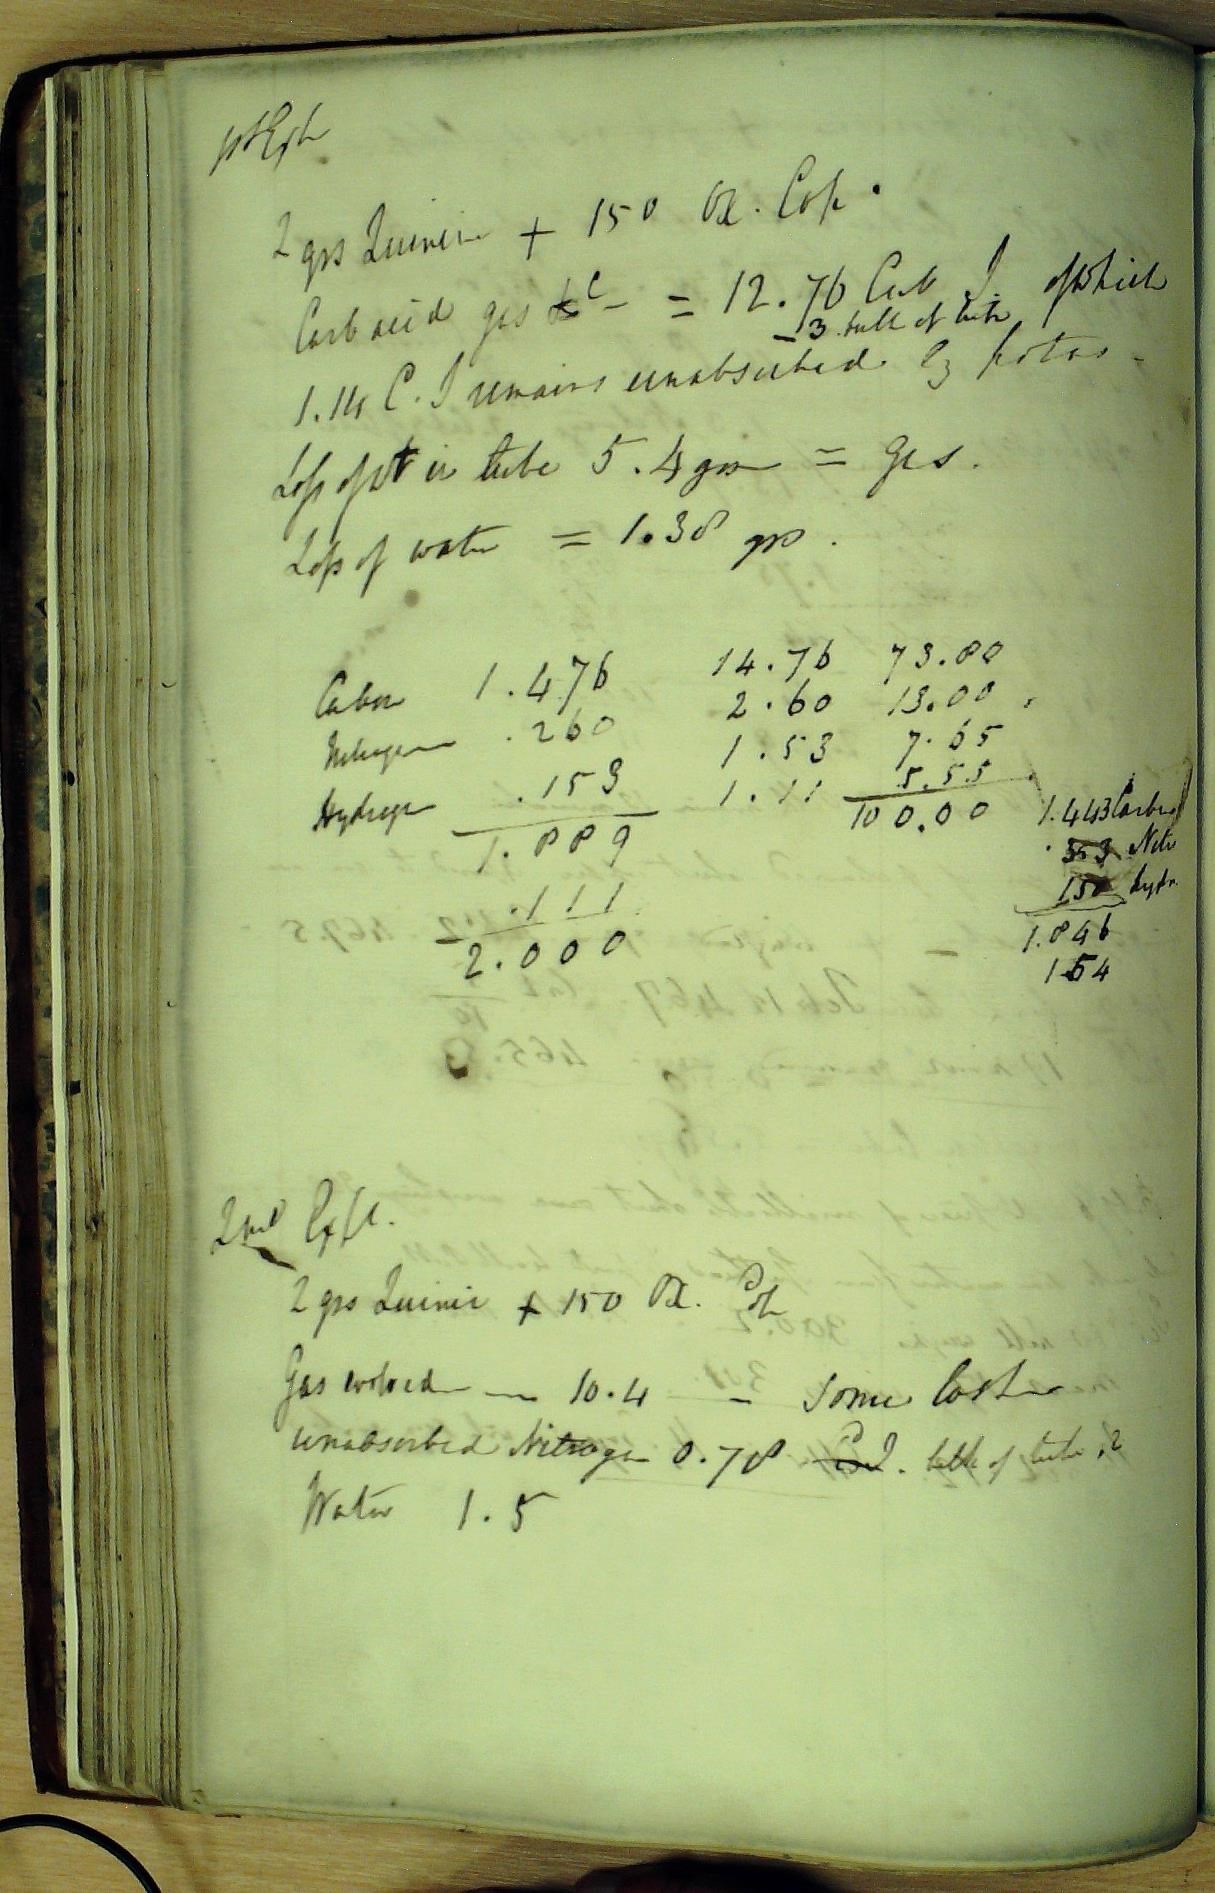 1st Expt
2 grs Quinine + 150 Ox. Cop.
Carb acid gas &c - = 12.76 Cub I. of which
- .3 bulk of tube
1.14 C. I remains unabsorbed by potas -
Loss of wt in tube 5.4 grs = gas.
Loss of water = 1.38 grs.
Carbon 1.476 14.76 73.80
Nitrogen .260 2.60 13.00
Hydrogen .153 1.53 7.65
1.11 5.55
1.889 100.00
.111
2.000
1.443 Carbon
. Nitr
150 Hydr.
1.846
154
2nd Expt.
2 grs Quinine + 150 Ox. Cop
Gas evolved — 10.4 — Some lost
unabsorbed Nitrogen 0.78 C. I. bulk of tube .2
Water 1.5